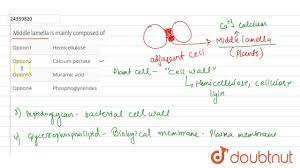 24359820
Middle lamella is mainly composed of
Option1 Hemicellulose
Option2 Calcium pectate
Option3 Muramic acid
Option4 Phosphoglycerides
Ca+2 calcium
Middle lamella
(Plants)
adjacent cell
Plant cell - "Cell wall"
Hemicellulose, cellulose
3) Peptidoglycan - bacterial cell wall
4) - Biological membrane - Plasma membrane
doubtnut